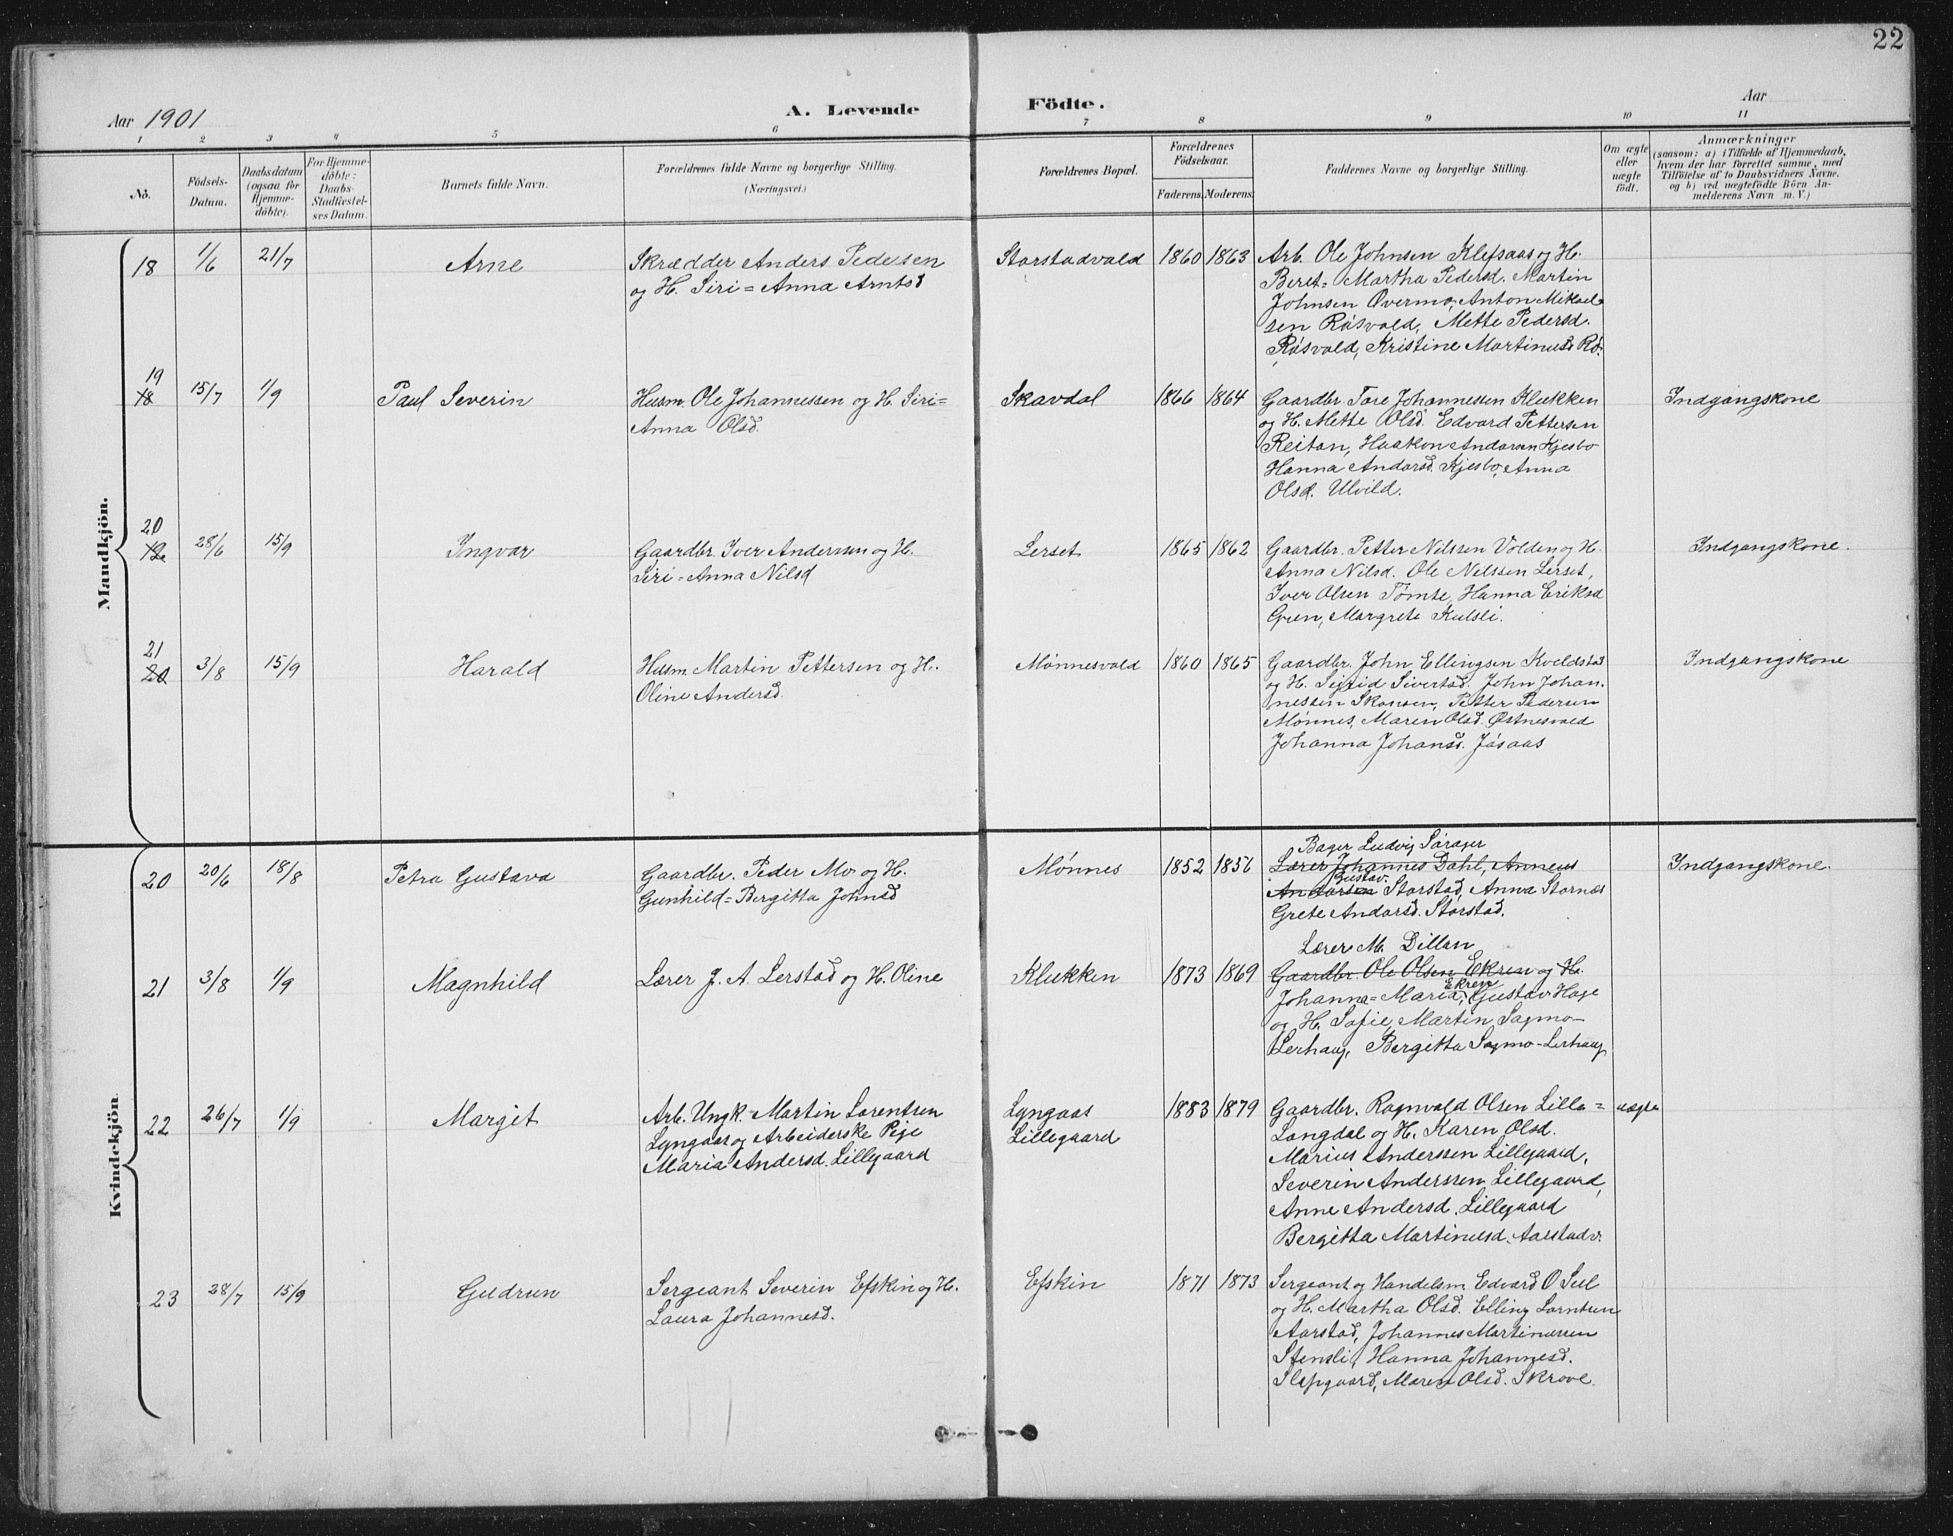 22
Aar 1901
A. Levende
Födte.
Aar
1 2 3 4 5 6 7 8 9 10 11
No.
Födsels-Datum.
Daabsdatum (ogsaa for Hjemmedöbte).
For Hjemmedöbte: Daabs-Stadfæstelses Datum.
Barnets fulde Navn.
Forældrenes fulde Navne og borgerlige Stilling.
(Næringsvei.)
Forældrenes Bopæl.
Forældrenes Födselsaar.
Faderens. Moderens.
Faddernes Navne og borgerlige Stilling.
Om ægte eller uægte födt.
Anmærkninger
(saasom: a) i Tilfælde af Hjemmedaab,
hvem der har forrettet samme, med
Tilföielse af to Daabsvidners Navne.
og b) ved uægtefödte Börn An-
melderens Navn m. V.)
Mandkjön.
18 1/6 21/7 Arne
Skrædder Anders Pedersen
og H. Siri=Anna Arntsd
Storstadvald 1860 1863
Arb. Ole Johnsen Klefsaas og H.
Beret=Martha Pedersd. Martin
Johnsen Overmo, Anton Mikael-
sen Røsvald, Mette Pedersd.
Røsvald, Kristine Martinusd Rø.
19
18 15/7 1/9 Paul Severin
Husm. Ole Johannessen og H. Siri=
Anna Olsd.
Skavdal 1866 1864
Gaardbr. Tore Johannessen Klukken
og H. Mette Olsd. Edvard Pettersen
Reitan, Haakon Andersen Kjesbo
Hanna Andersd. Kjesbo, Anna
Olsd. Ulvild.
Indgangskone
20
28/6 15/9 Ingvar
Gaardbr. Iver Andersen og H.
Siri=Anna Nilsd
Lerset 1865 1862
Gaardbr. Petter Nilssen Volden og H.
Anna Nilsd. Ole Nilssen Lerset,
Iver Olsen Tømte, Hanna Eriksd
Gren, Margrete Kulsli.
Indgangskone.
21
20 3/8 15/9 Harald
Husm. Martin Pettersen og H.
Oline Andersd.
Mønnesvald 1860 1865
Gaardbr. John Ellingsen Kveldstad
og H. Sigrid Sivertsd. John Johan-
nessen Skansen, Petter Pedersen
Mønnes, Maren Olsd. Østnesvald
Johanna Johansd. Jøsaas
Indgangskone
Kvindekjön.
20 20/6 18/8 Petra Gustava
Gaardbr. Peder Mo og H.
Gunhild=Bergitta Johnsd
Mønnes 1852 1856
Bager Ludvig Sørager
Lærer Johannes Dahl, Anneus
Gustav
Andersen Storstad, Anna Stornæs
Grete Andersd. Storstad.
Indgangskone.
21 3/8 1/9 Magnhild
Lærer J. A. Lerstad og H. Oline
Klukken 1873 1869
Lærer M. Dillan
Gaardbr. Ole Olsen Ekren og H.
Ekren
Johanna=Maria, Gustav Hage
og H. Sofie, Martin Sagmo-
Lerhaug, Bergitta Sagmo-Lerhaug
22 26/7 1/9 Margit
Arb. Ungk. Martin Lorentsen
Lyngaas og Arbeiderske Pige
Maria Andersd. Lillegaard
Lyngaas
Lillegaard
1883 1879
Gaardbr. Ragnvald Olsen Lille=
Langdal og H. Karen Olsd.
Marius Anderssen Lillegaard,
Severin Anderssen Lillegaard,
Anne Andersd. Lillegaard
Bergitta Martinusd. Aarstadv.
uægte
23 28/7 15/9 Gudrun
Sergeant Severin Efskin og H.
Laura Johannesd.
Efskin 1871 1873
Sergeant og Handelsm. Edvard O Sul
og H. Martha Olsd. Elling Lorntsen
Aarstad, Johannes Martinussen
Stensli, Hanna Johannesd.
Slapgaard, Maren Olsd. Skrove.